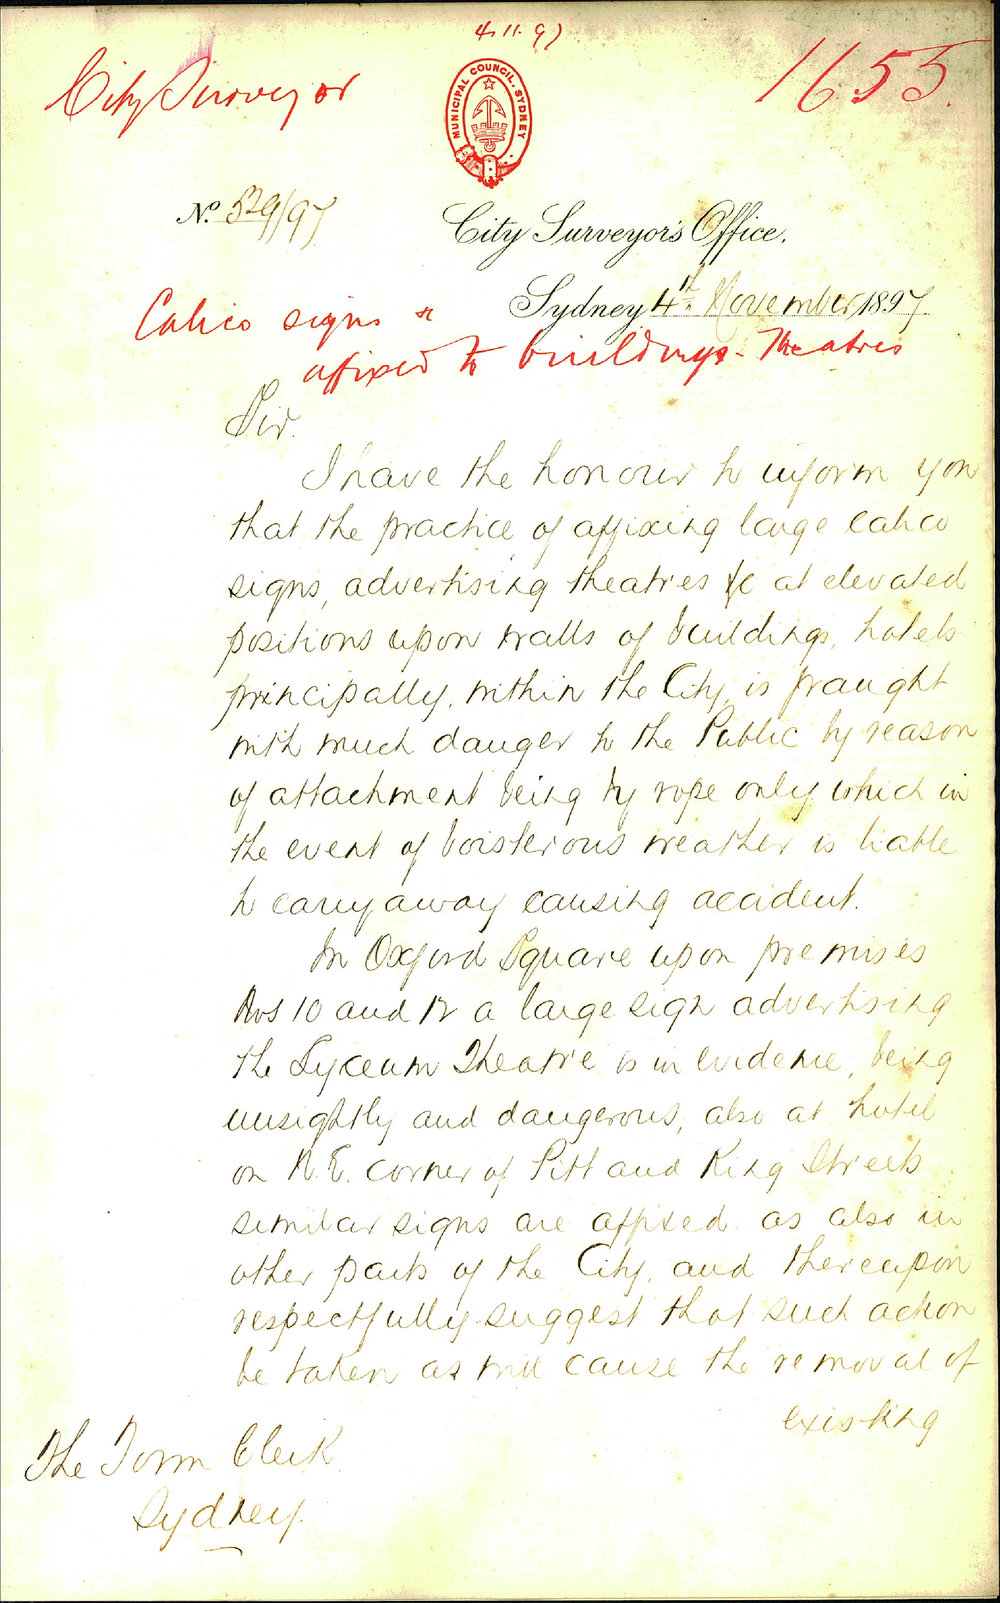 4.11.97
City Surveyor
1655.
MUNICIPAL COUNCIL. SYDNEY
No. 529/97
City Surveyor's Office,
Sydney 4th November 1897
Calico signs &
affixed to buildings - Theatres
Sir.
I have the honour to inform you
that the practice of affixing large calico
signs, advertising theatres &c at elevated
positions upon walls of buildings, hotels
principally, within the City, is fraught
with much danger to the Public by reason
of attachment being by rope only which in
the event of boisterous weather is liable
to carry away causing accident.
In Oxford Square upon premises
Nos 10 and 12 a large sign advertising
the Lyceum Theatre is in evidence, being
unsightly and dangerous, also at hotel
on N.E. corner of Pitt and King Streets
similar signs are affixed as also in
other parts of the City, and thereupon
respectfully suggest that such action
be taken as will cause the removal of
existing
The Town Clerk
Sydney.